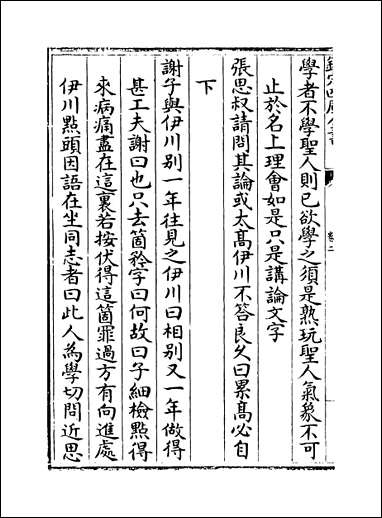 學者不學聖人則已欲學之須是熟玩聖人氣象不可
止於名上理會如是只是講論文字
張思叔請問其論或太高伊川不答良久曰累高必自
下
謝子與伊川別一年往見之伊川曰相別又一年做得
甚工夫謝曰也只去箇矜字曰何故曰子細檢點得
來病痛盡在這裏若按伏得這箇罪過方有向進處
伊川點頭因語在坐同志者曰此人為學切問近思